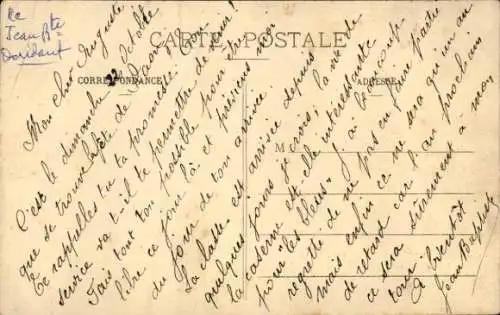 de
Jean Bte
Doridant
CARTE POSTALE
CORRESPONDANCE
ADRESSE
M
Mon cher Auguste
C'est le dimanche 22 Octobre
que se trouve la fête de
Te rappelles-tu ta promesse. Ton
service va-t-il te permettre de venir?
Fais tout ton possible pour être
libre ce jour là et préviens moi
du jour de ton arrivée.
La classe est arrivée depuis
quelques jours je crois, la vie de
caserne est elle intéressante
pour les bleus. J'ai beaucoup
regretté de ne pas en faire partie
mais enfin ce ne sera qu'un an
de retard car l'an prochain
ce sera sûrement à mon
tour. A bientôt
Jean Baptiste